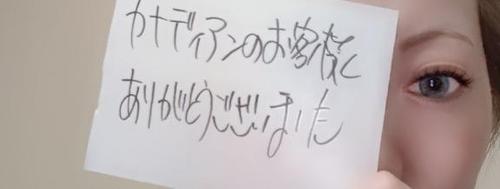 カナディアンのお客様
ありがとうございました